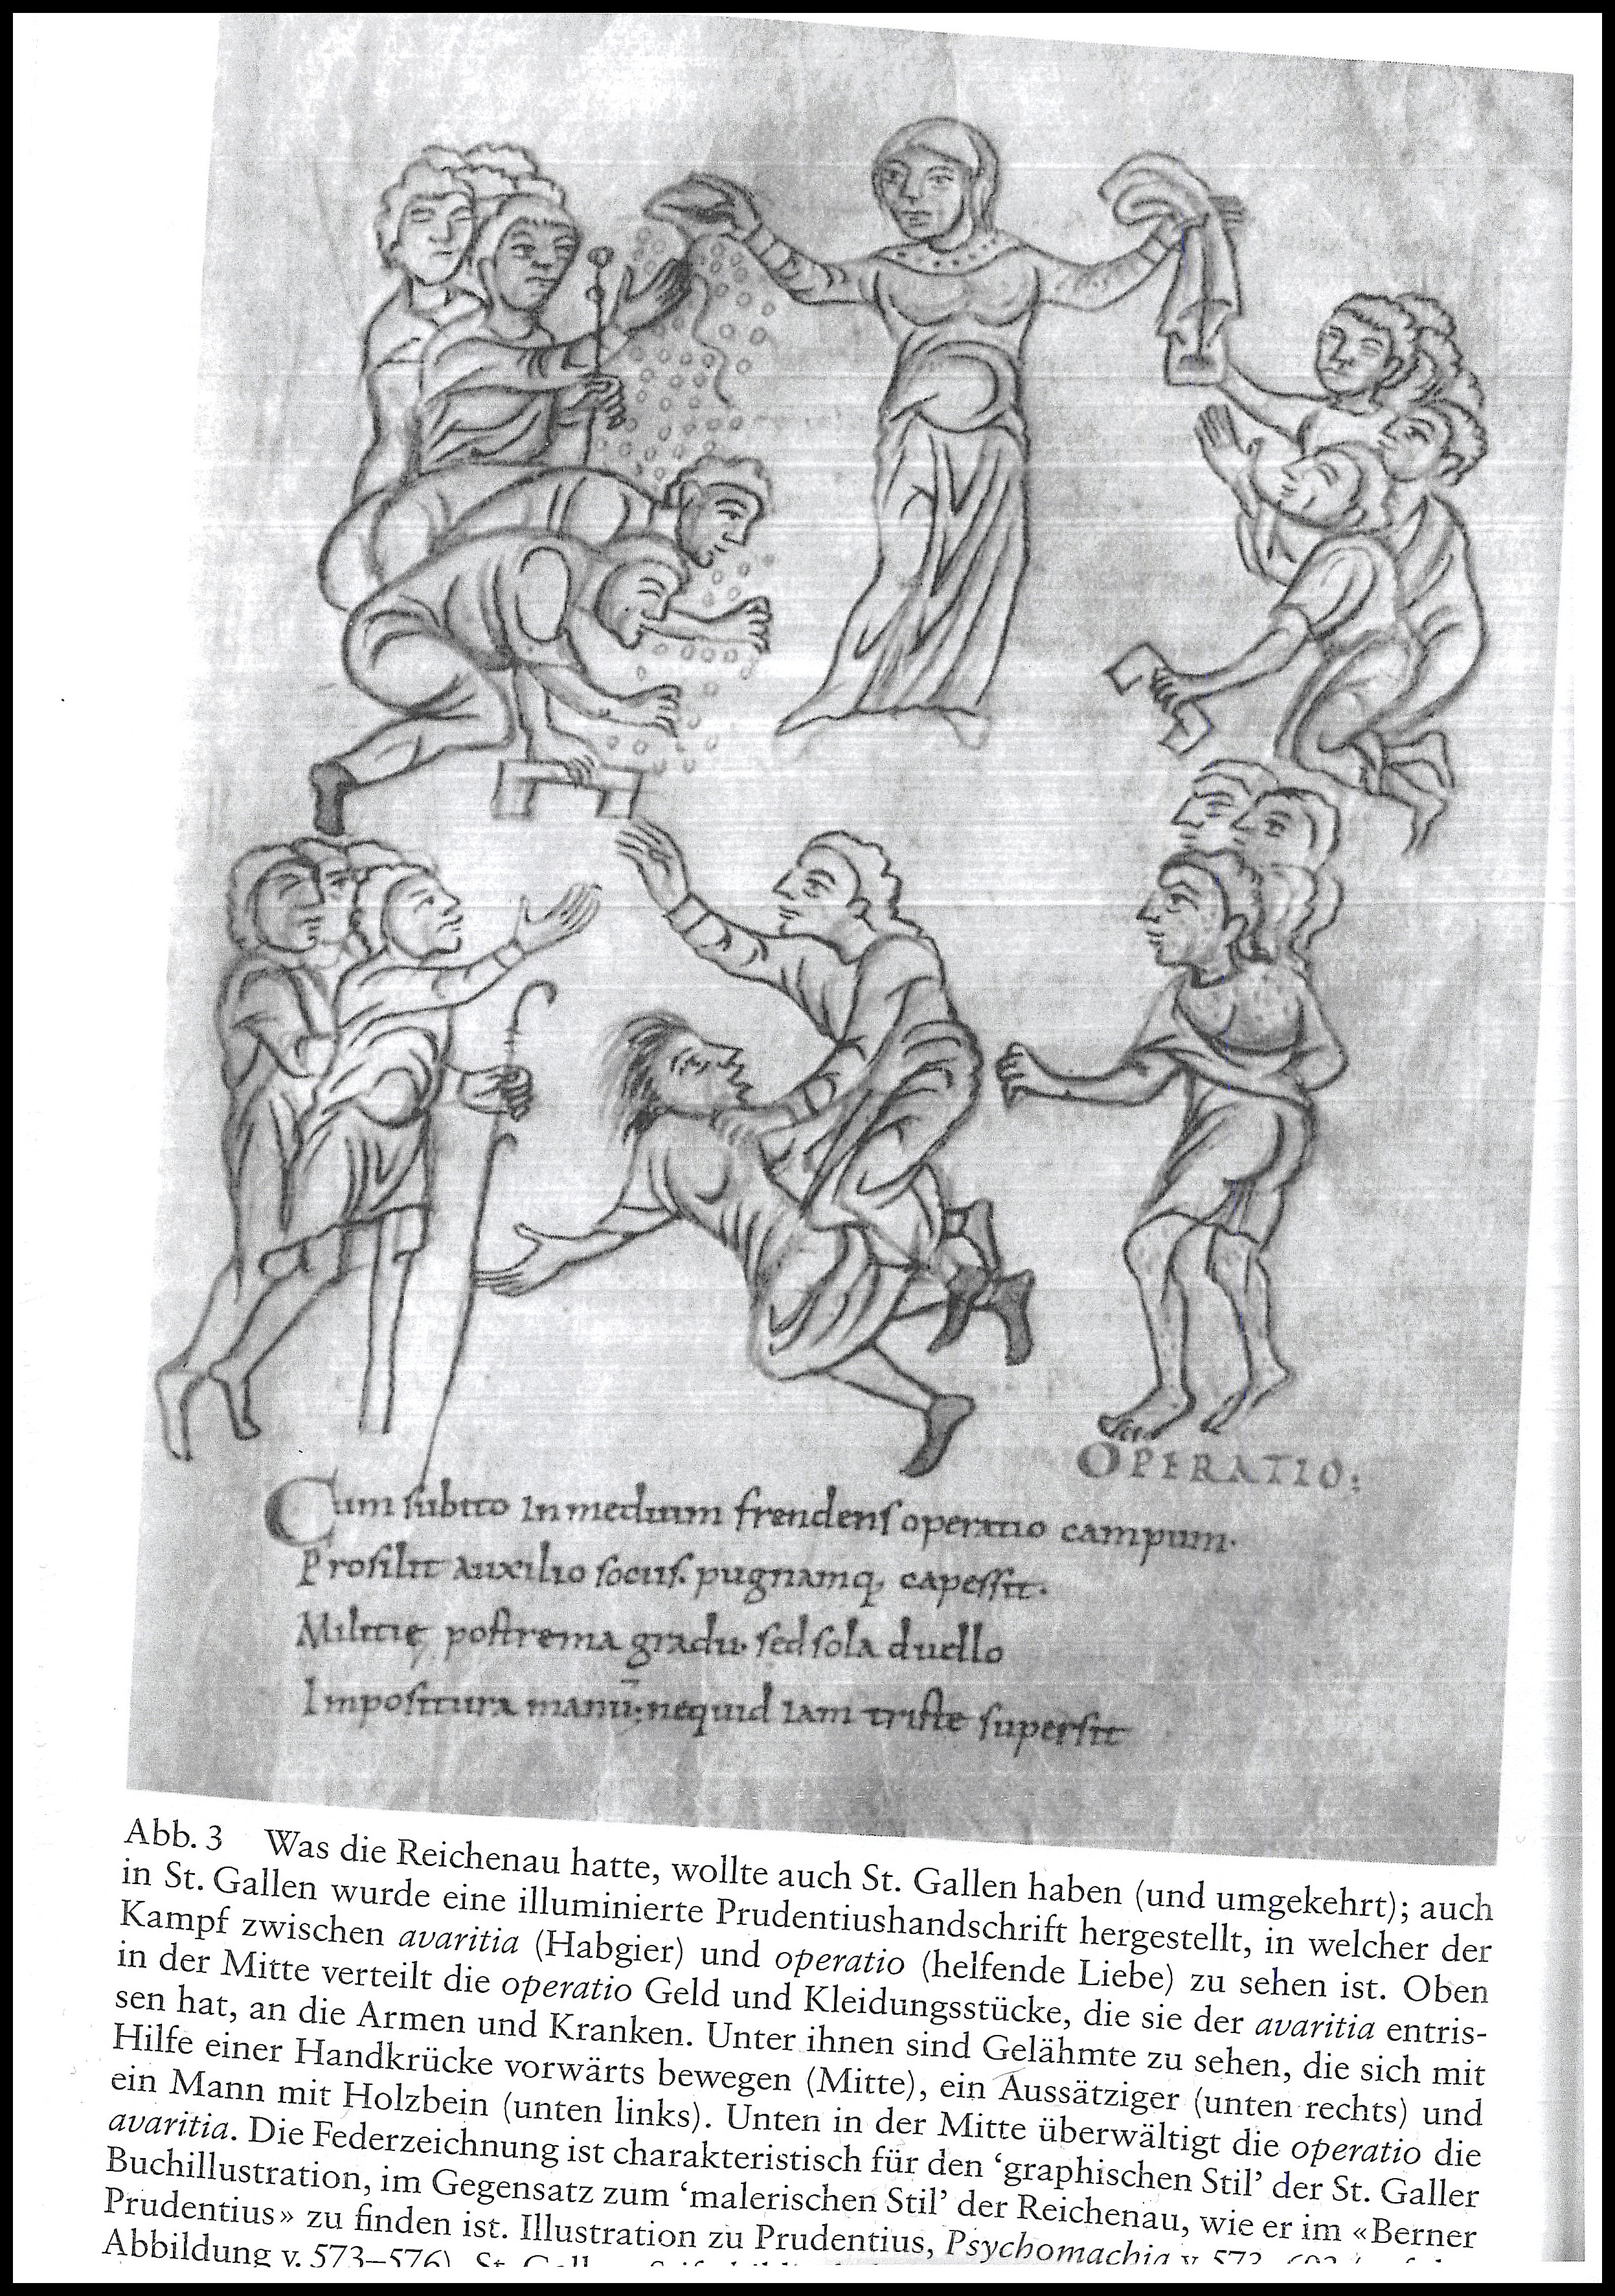 OPERATIO:
Cum subito in medium frendens operatio campum.
Prosilit auxilio sociis. pugnamq; capessit.
Militię postrema gradu. sed sola duello
Impositura manū; nequid iam triste supersit
Abb. 3 Was die Reichenau hatte, wollte auch St. Gallen haben (und umgekehrt); auch
in St. Gallen wurde eine illuminierte Prudentiushandschrift hergestellt, in welcher der
Kampf zwischen avaritia (Habgier) und operatio (helfende Liebe) zu sehen ist. Oben
in der Mitte verteilt die operatio Geld und Kleidungsstücke, die sie der avaritia entris-
sen hat, an die Armen und Kranken. Unter ihnen sind Gelähmte zu sehen, die sich mit
Hilfe einer Handkrücke vorwärts bewegen (Mitte), ein Aussätziger (unten rechts) und
ein Mann mit Holzbein (unten links). Unten in der Mitte überwältigt die operatio die
avaritia. Die Federzeichnung ist charakteristisch für den ‘graphischen Stil’ der St. Galler
Buchillustration, im Gegensatz zum ‘malerischen Stil’ der Reichenau, wie er im «Berner
Prudentius» zu finden ist. Illustration zu Prudentius, Psychomachia v.
Abbildung v. 573–576), St.